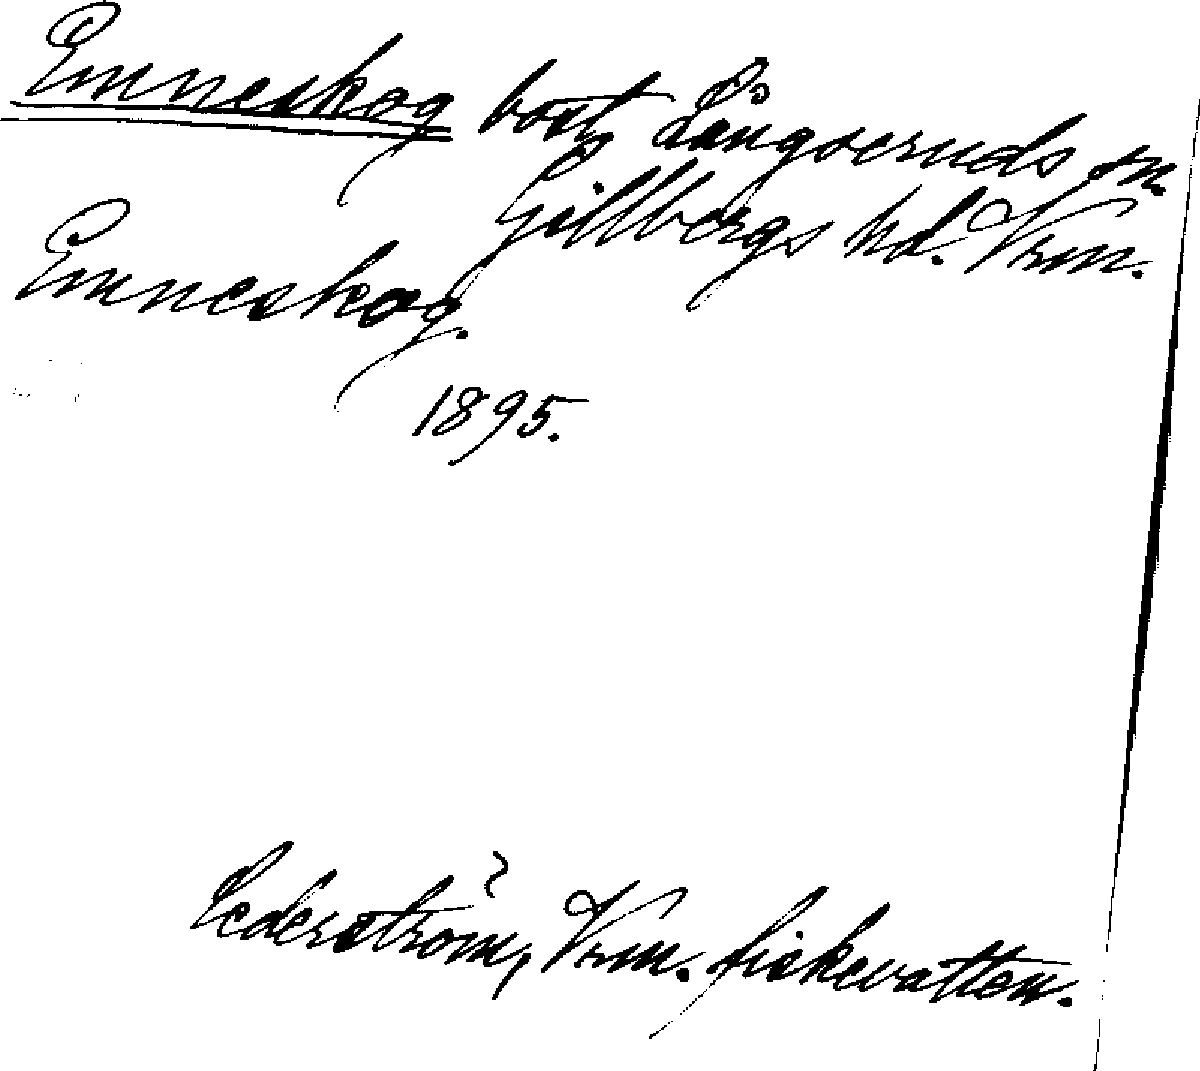 Emneskog bost, Långseruds sn.
Gillbergs hd. Vrm.
Emneskog.
1895.
Cederström, Vrm. fiskevatten.